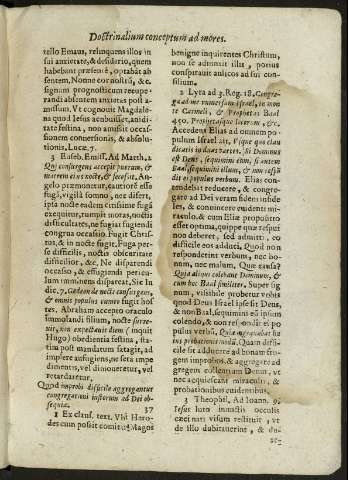 Doctrinalium conceptum ad mores.
tello Emaus, relinquens illos in
sui anxietate, & desiderio, quem
habebant præsentē, optabāt ab
sentem, Nonne cor nostrū, &c.
signum prognosticum recupe-
randi absentem anxietas post a-
missum. Vt cognovit Magdale
na quod Iesus accubuisset, anxie
tate festina, non amisit occasi-
onem conversionis, & absolu-
tionis, Luca. 7.
3 Euseb. Emiss. Ad Matth. 2
Qui consurgens accepit puerum, &
matrem eius nocte, & secessit. An-
gelo præmonitus, cautiore esse
fugā, vigilā somno, nec differt,
ipsa nocte eadem cursum fugā
exequitur, rumpit moras, noctis
difficultates, ne fugiat fugiendi
congrua occasio. Fugit Christ-
us, & in nocte fugit. Fuga per
se difficilis, noctis obscuritate
difficilior, &c. Ne disparendi
occasio, & effugiendi pericu-
lum imminens dispareat, Sic In
dic. 7. Gedeon de nocte consurgens,
& omnis populus cum eo fugit hos
tes. Abraham accepto oraculo
immolandi filium, nocte surre-
xit, non expectavit diem (inquit
Hugo) obedientia festina, sta-
tim post mandatum satagit, ad
implere insurgens, ne seta impe
dimentis, vel dimoveretur, vel
retardaretur.
Quod improbi difficile aggregantur
congregationi iustorum ad Dei ob-
sequia.
37
1 Ex claus. text. Vbi Hero-
des cum possit comitari Magos
benigne inquirentes Christum,
non se adiunxit illis, potius
conspiravit aulicos ad sui con-
silium.
2 Lyra ad 3. Reg. 18. Congre-
ga ad me universum Israel, in mon
te Carmeli, & Prophetas Baal
450. Prophetasque lucorum, &c.
Accedens Elias ad omnem po-
pulum Israel ait, Usque quo clau
dicatis in duas partes. Si Dominus
est Deus, sequimini eum, si autem
Baal, sequimini illum, & non respō
dit ei populus verbum. Elias con-
tendebat reducere, & congre-
gare ad Dei veram fidem infide
les, & convincere evidenti mi-
raculo, & cum Elias propositio
esset optima, quippe quæ respui
non deberet, sed admitti, eo
difficile eos adduci. Quod non
respondentint verbum, nec bo-
num, nec malum. Quæ causa?
Quia aliqui colebant Dominum, &
cum hoc Baal similiter. Super sig
num, visibile probetur verbis
quod Deus Israel ipse sit Deus,
& non Baal, sequimini eū ipsum
colendo, & non respōdit ei po
pulus verbū. Quia aggravabat hā
ius probationis modū. Quam diffi-
cile sit adducere ad bonam fru-
gem improbos, & aggregare ad
gregem colentium Deum, vt
nec acquiescant miraculis, &
probationibus evidentibus.
3 Theophil. Ad Ioann. 9.
Iesus luto innactis oculis
cæci nati visum restituit, vt
de illo dubitaverint, & du-